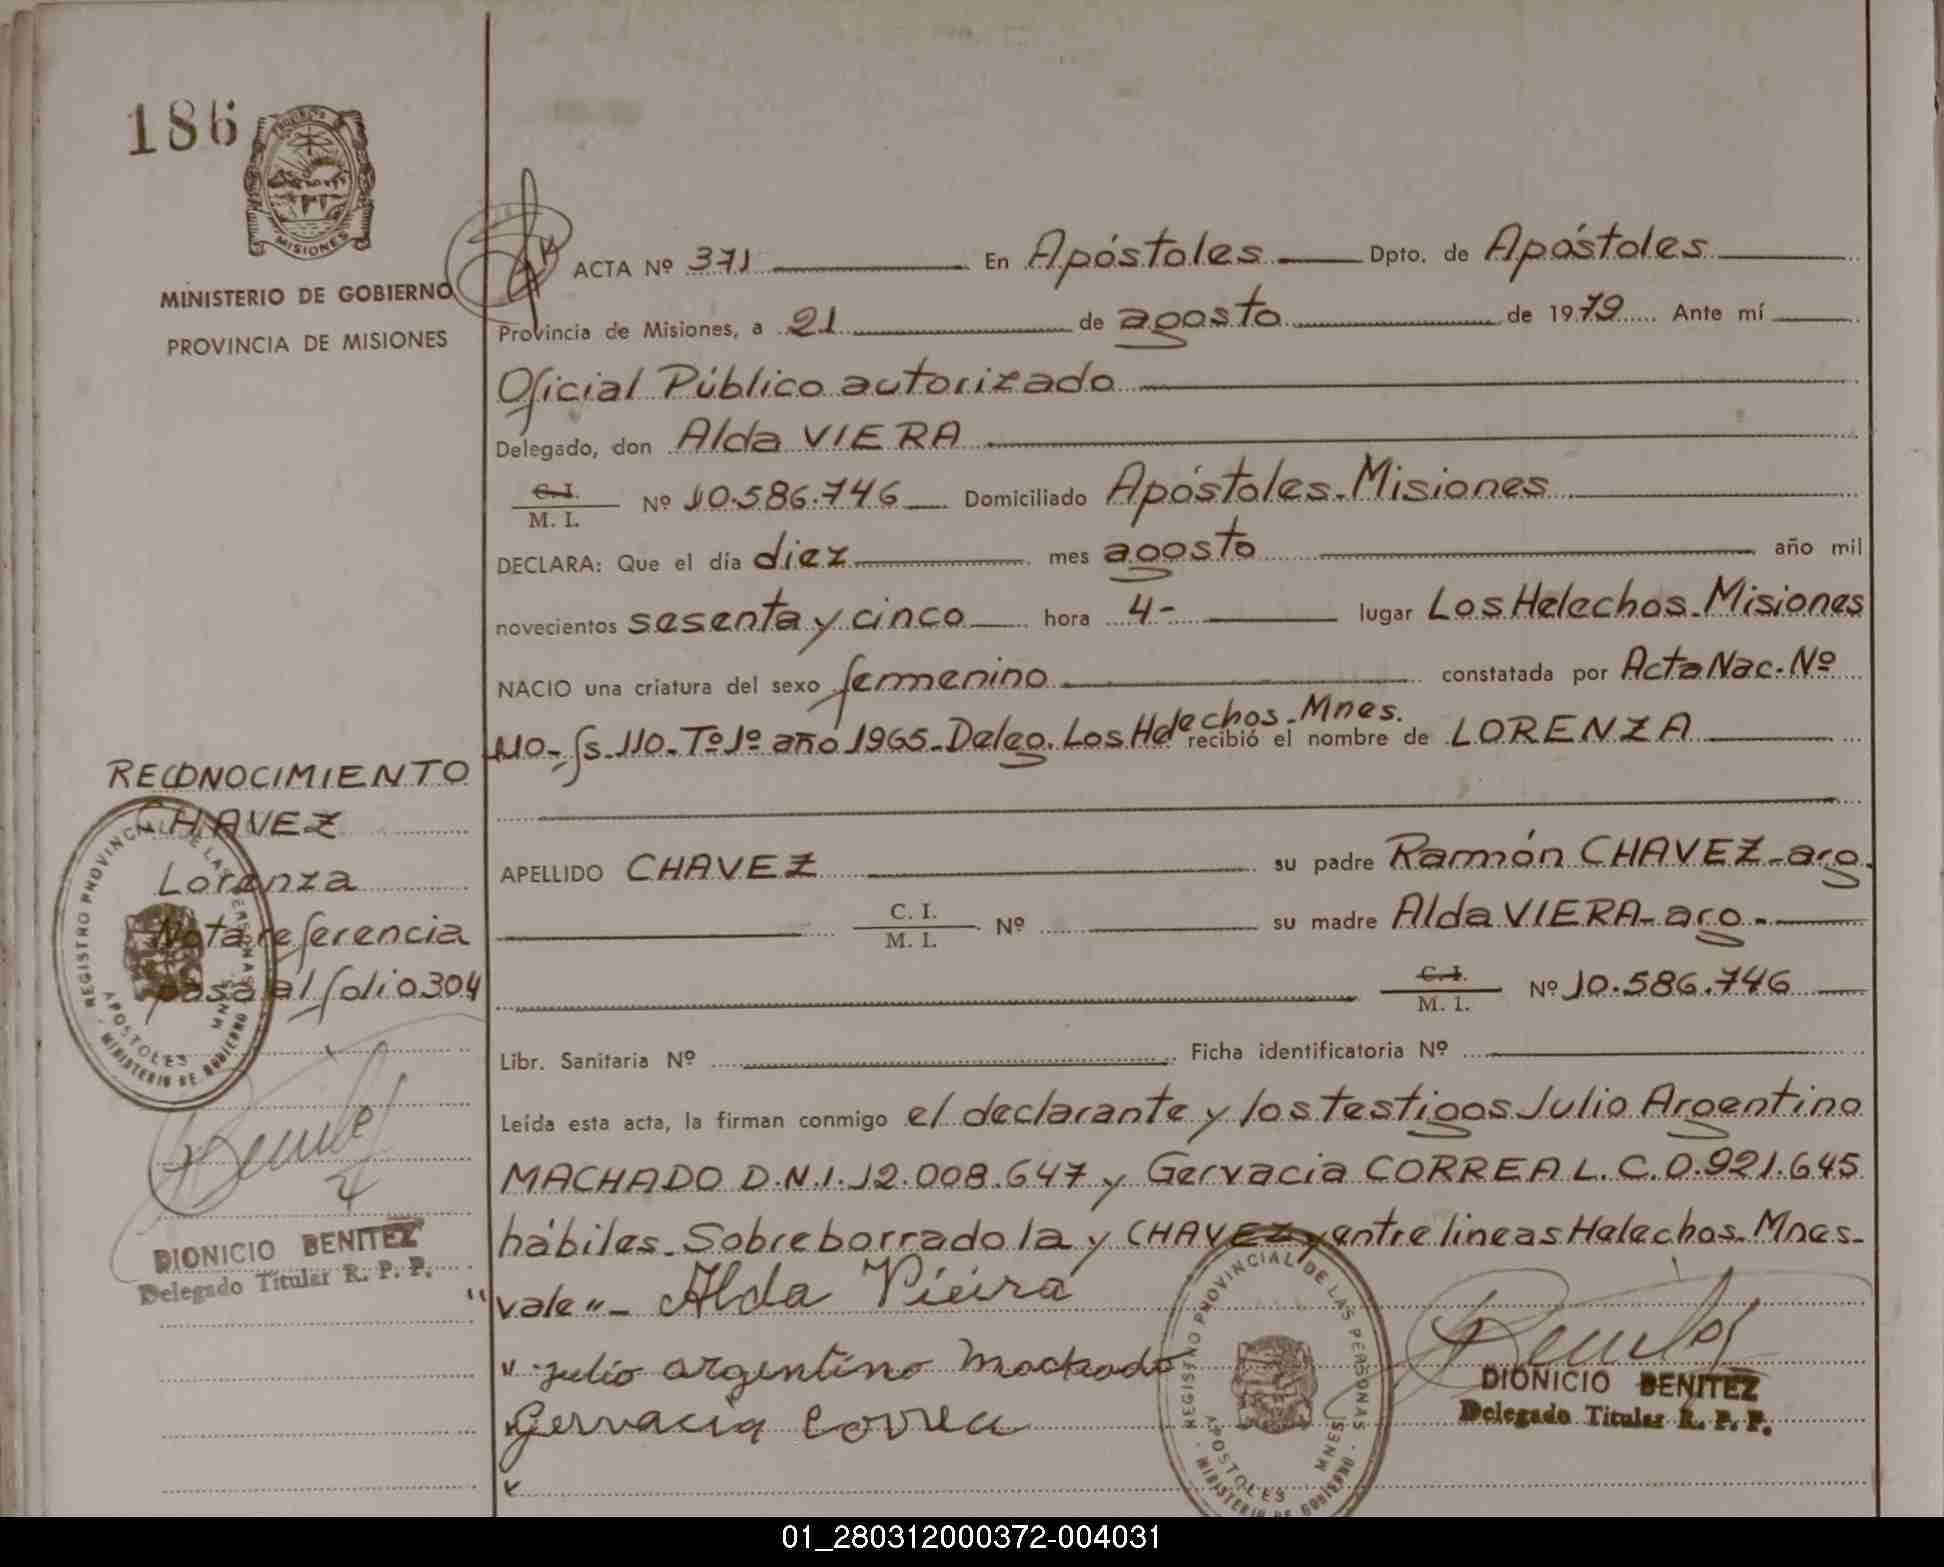 186
MISIONES
MINISTERIO DE GOBIERNO
PROVINCIA DE MISIONES
ACTA Nº 371 En Apóstoles Dpto. de Apóstoles
Provincia de Misiones, a 21 de agosto de 1979 Ante mí
Oficial Público autorizado
Delegado, don Alda VIERA
C. I.
M. I. Nº 10.586.746 Domiciliado Apóstoles. Misiones
DECLARA: Que el día diez mes agosto año mil
novecientos sesenta y cinco hora 4- lugar Los Helechos. Misiones
NACIO una criatura del sexo femenino constatada por Acta Nac. Nº
110- fs. 110. Tº 1º año 1965. Deleg. Los Helechos. Mnes. recibió el nombre de LORENZA
APELLIDO CHAVEZ su padre Ramón CHAVEZ- arg.
C. I.
M. I. Nº su madre Alda VIERA- arg.-
C. I.
M. I. Nº 10.586.746
Libr. Sanitaria Nº Ficha identificatoria Nº
Leída esta acta, la firman conmigo el declarante y los testigos Julio Argentino
MACHADO D.N.I. 12.008.647 y Gervacia CORREA L.C. 0.921.645
hábiles. Sobre borrado la y CHAVEZ y entre lineas Helechos. Mnes.-
"vale"- Alda Vieira
julio argentino Machado
Gervacia Correa
REGISTRO PROVINCIAL DE LAS PERSONAS
APOSTOLES MNES
MINISTERIO DE GOBIERNO
DIONICIO BENITEZ
Delegado Titular R. P. P.
RECONOCIMIENTO
CHAVEZ
Lorenza
Nota referencia
pasa al folio 304
REGISTRO PROVINCIAL DE LAS PERSONAS
APOSTOLES MNES
MINISTERIO DE GOBIERNO
DIONICIO BENITEZ
Delegado Titular R. P. P.
01_280312000372-004031